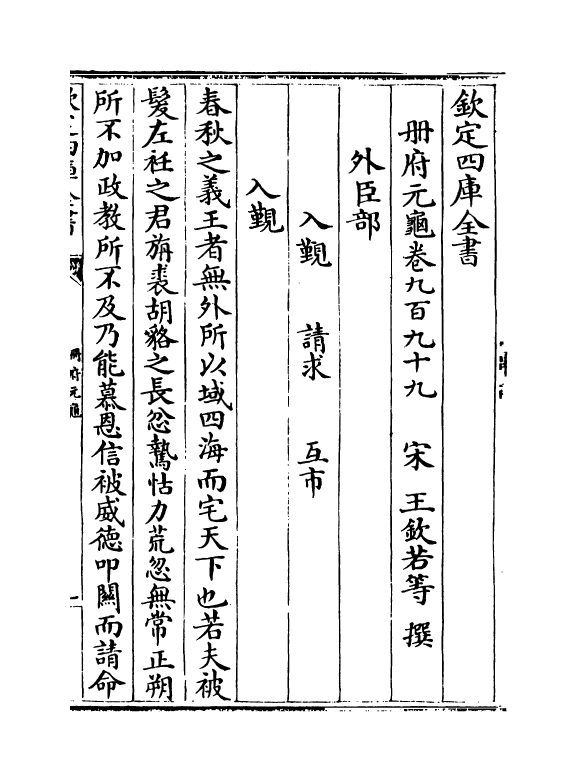 欽定四庫全書
册府元龜卷九百九十九 宋 王欽若等 撰
外臣部
入覲 請求 互市
入覲
春秋之義王者無外所以域四海而宅天下也若夫被
髮左衽之君旃裘胡貉之長忿鷙怙力荒忽無常正朔
所不加政教所不及乃能慕恩信被威德叩關而請命
欽定四庫全書
册府元龜
一